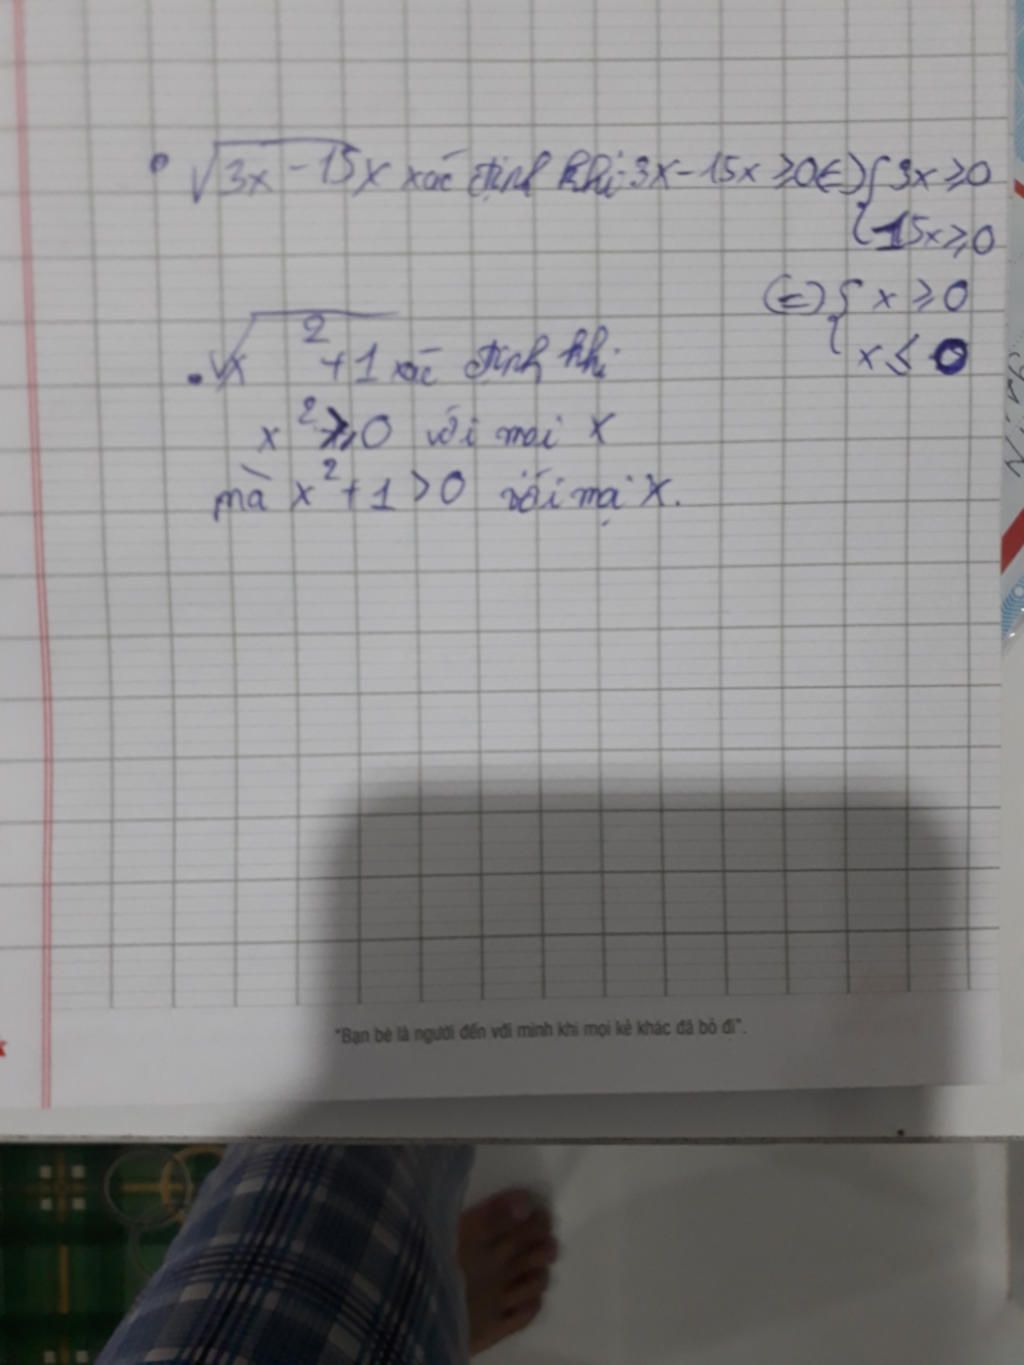 √3x - 15x xác định khi 3x - 15x ≥ 0 (=) { 3x ≥ 0
{ -15x ≥ 0
(=) { x ≥ 0
{ x ≤ 0
√x² + 1 xác định khi
x² ≥ 0 với mọi x
mà x² + 1 > 0 với mọi x.
"Bạn bè là người đến với mình khi mọi kẻ khác đã bỏ đi".